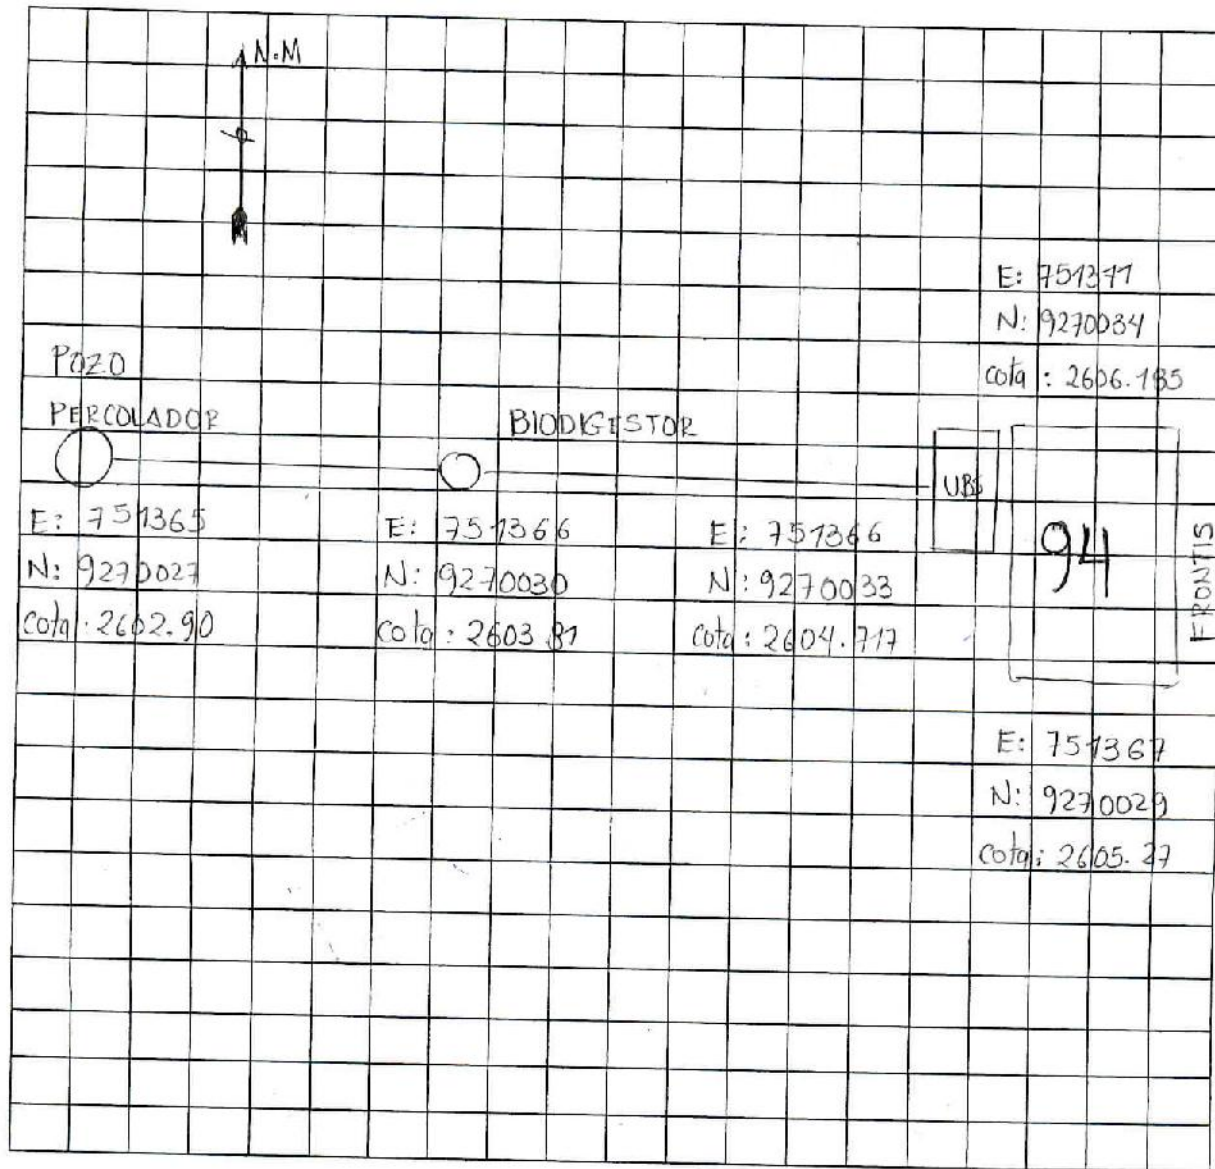 N.M
E: 751371
N: 9270034
cota: 2606.185
POZO
PERCOLADOR
BIODIGESTOR
UBS
E: 751365
N: 9270027
cota: 2602.90
E: 751366
N: 9270030
cota: 2603.81
E: 751366
N: 9270033
cota: 2604.717
94
FRONTIS
E: 751367
N: 9270029
cota: 2605.27